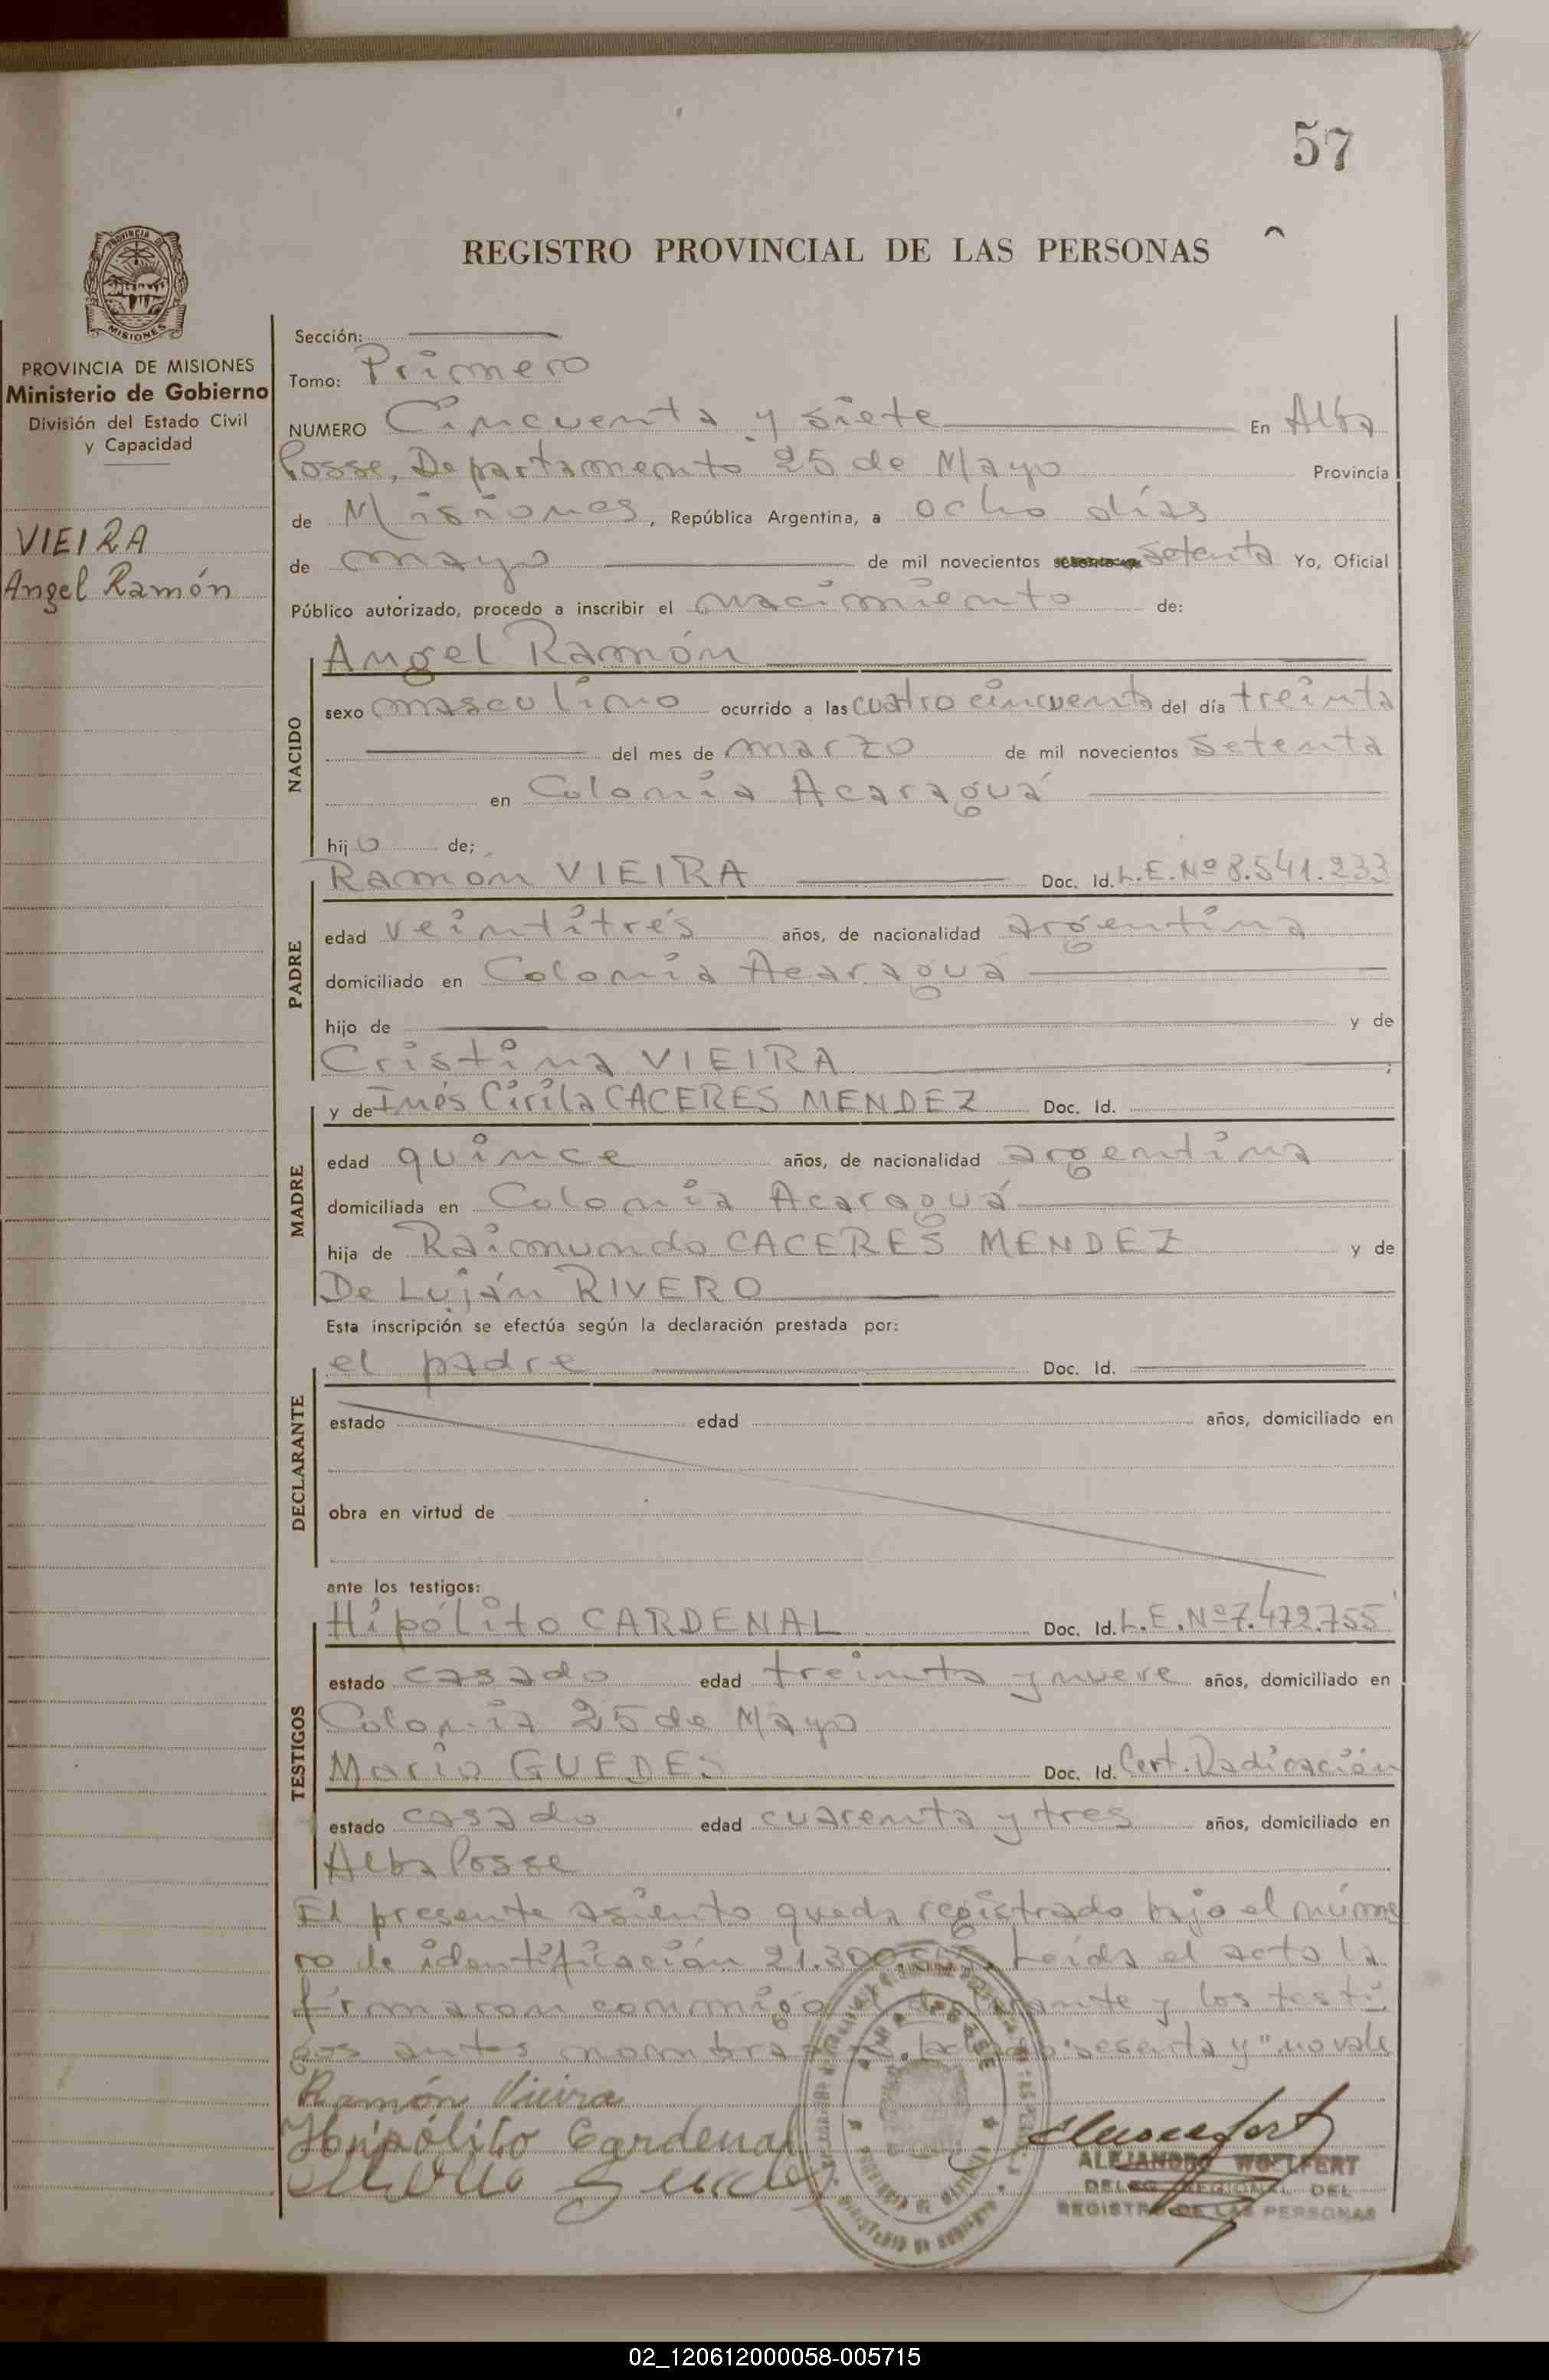 57
REGISTRO PROVINCIAL DE LAS PERSONAS
PROVINCIA DE
MISIONES
PROVINCIA DE MISIONES
Ministerio de Gobierno
División del Estado Civil
y Capacidad
VIEIRA
Angel Ramón
Sección:
Tomo: Primero
NUMERO Cincuenta y siete En Alba
Posse, Departamento 25 de Mayo Provincia
de Misiones, República Argentina, a ocho días
de mayo de mil novecientos setenta Yo, Oficial
Público autorizado, procedo a inscribir el nacimiento de:
NACIDO
Angel Ramón
sexo masculino ocurrido a las cuatro cincuenta del día treinta
del mes de marzo de mil novecientos setenta
en Colonia Acaraguá
hijo de;
PADRE
Ramón VIEIRA Doc. Id. L.E. Nº 8.541.233
edad veintitrés años, de nacionalidad argentina
domiciliado en Colonia Acaraguá
hijo de y de
Cristina VIEIRA ;
MADRE
y de Inés Cirila CACERES MENDEZ Doc. Id.
edad quince años, de nacionalidad argentina
domiciliada en Colonia Acaraguá
hija de Raimundo CACERES MENDEZ y de
De Luján RIVERO
Esta inscripción se efectúa según la declaración prestada por:
DECLARANTE
el padre Doc. Id.
estado edad años, domiciliado en
obra en virtud de
ante los testigos:
TESTIGOS
Hipólito CARDENAL Doc. Id. L.E. Nº 7.472.755
estado casado edad treinta y nueve años, domiciliado en
Colonia 25 de Mayo
Mario GUEDES Doc. Id. Cert. Radicación
estado casado edad cuarenta y tres años, domiciliado en
Alba Posse
El presente asiento queda registrado bajo el núme
ro de identificación Leída el acta la
firmaron conmigo el declarante y los testi
gos antes nombrados. "sesenta y" no vale
Ramón Vieira
Hipólito Cardenal
ALEJANDRO WOLFERT
DELEG. REGIONAL DEL
REGISTRO DE LAS PERSONAS
02_120612000058-005715